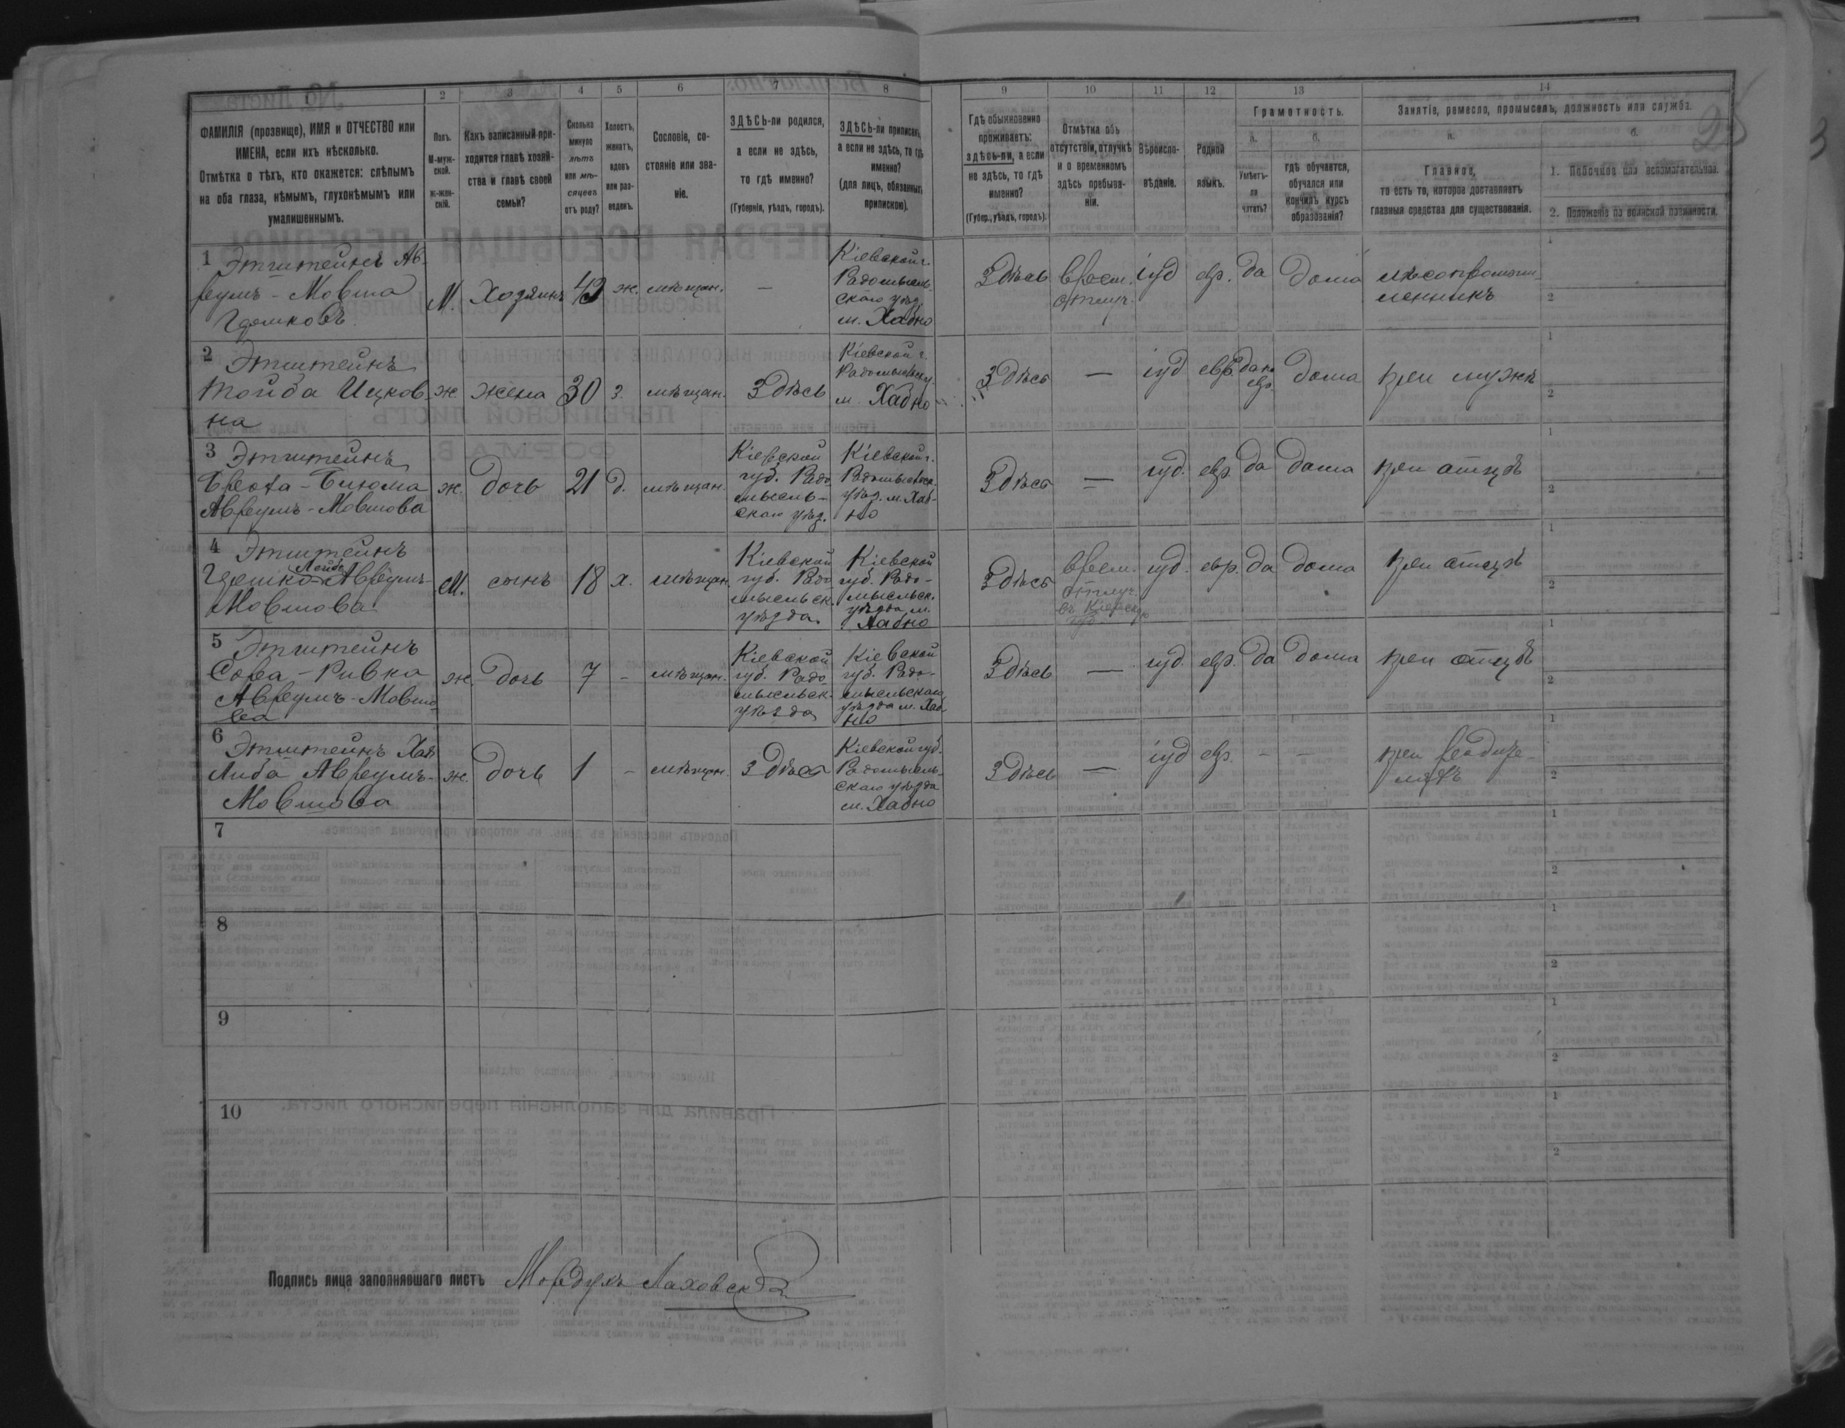 1 2 3 4 5 6 7 8 9 10 11 12 13 14
ФАМИЛІЯ (прозвище), ИМЯ и ОТЧЕСТВО или
ИМЕНА, если ихъ нѣсколько.
Отмѣтка о тѣхъ, кто окажется: слѣпымъ
на оба глаза, нѣмымъ, глухонѣмымъ или
умалишеннымъ.
Полъ.
М-муж-
ской.
ж-жен-
скій.
Какъ записанный при-
ходится главѣ хозяй-
ства и главѣ своей
семьи?
Сколько
минуло
лѣтъ
или мѣ-
сяцевъ
отъ роду?
Холостъ,
женатъ,
вдовъ
или раз-
веденъ.
Сословіе, со-
стояніе или зва-
ніе.
ЗДѢСЬ-ли родился,
а если не здѣсь,
то гдѣ именно?
(Губернія, уѣздъ, городъ).
ЗДѢСЬ-ли приписанъ,
а если не здѣсь, то гдѣ
именно?
(для лицъ, обязанныхъ
припискою).
Гдѣ обыкновенно
проживаетъ:
здѣсь-ли, а если
не здѣсь, то гдѣ
именно?
(Губер., уѣздъ, городъ).
Отмѣтка объ
отсутствіи, отлучкѣ
и о временномъ
здѣсь пребыва-
ніи.
Вѣроиспо-
вѣданіе.
Родной
языкъ.
Грамотность.
а.
Умѣетъ-
ли
читать?
б.
гдѣ обучается,
обучался или
кончилъ курсъ
образованія?
Занятіе, ремесло, промыселъ, должность или служба.
а.
Главное,
то есть то, которое доставляетъ
главныя средства для существованія.
б.
1. Побочное или вспомогательное.
2. Положеніе по воинской повинности.
1 Эпштейнъ Ав-
румъ - Мовша
М. Хозяинъ 43 ж. мѣщан. —
Кіевской г.
Радомысль-
скаго уѣзд.
м. Хабно
Здѣсь
врем.
отлуч.
іуд евр. да дома
лѣсопромыш-
ленникъ
2 Эпштейнъ
Тойба Ицков
на
ж. жена 30 з. мѣщан. Здѣсь
Кіевской г.
м. Хабно
Здѣсь — іуд евр. дома при мужѣ
3 Эпштейнъ
Аврумъ-Мовшова
ж. дочь 21 д. мѣщан.
Кіевской
губ. Радо
мысль-
скаго уѣзд.
Кіевской г.
уѣзд. м. Хаб-
но
Здѣсь — іуд. евр. да дома при отцѣ
4 Эпштейнъ
Лейб
Аврумъ-
Мовшова
М. сынъ 18 х. мѣщан.
Кіевской
губ. Радо
мысльск.
уѣзда
Кіевской
губ. Радо-
мысльск.
уѣзда м.
Хабно
Здѣсь
врем.
отлуч.
іуд. евр. да дома при отцѣ
5 Эпштейнъ
Сора - Ривка
Аврумъ-Мовшо
ва
ж. дочь 7 - мѣщан.
Кіевской
губ. Радо
мысльск.
уѣзда
Кіевской
губ. Радо-
мысльскаго
уѣзда м. Хаб
но
Здѣсь — іуд. евр. да дома при отцѣ
6 Эпштейнъ Хая
Либа Аврумъ-
Мовшова
ж. дочь 1 - мѣщан. Здѣсь
Кіевской губ.
Радомысль-
скаго уѣзда
м. Хабно
Здѣсь — іуд евр. - -
при родите-
ляхъ
7
8
9
10
Подпись лица заполнявшаго листъ Мордухъ Лаховскій